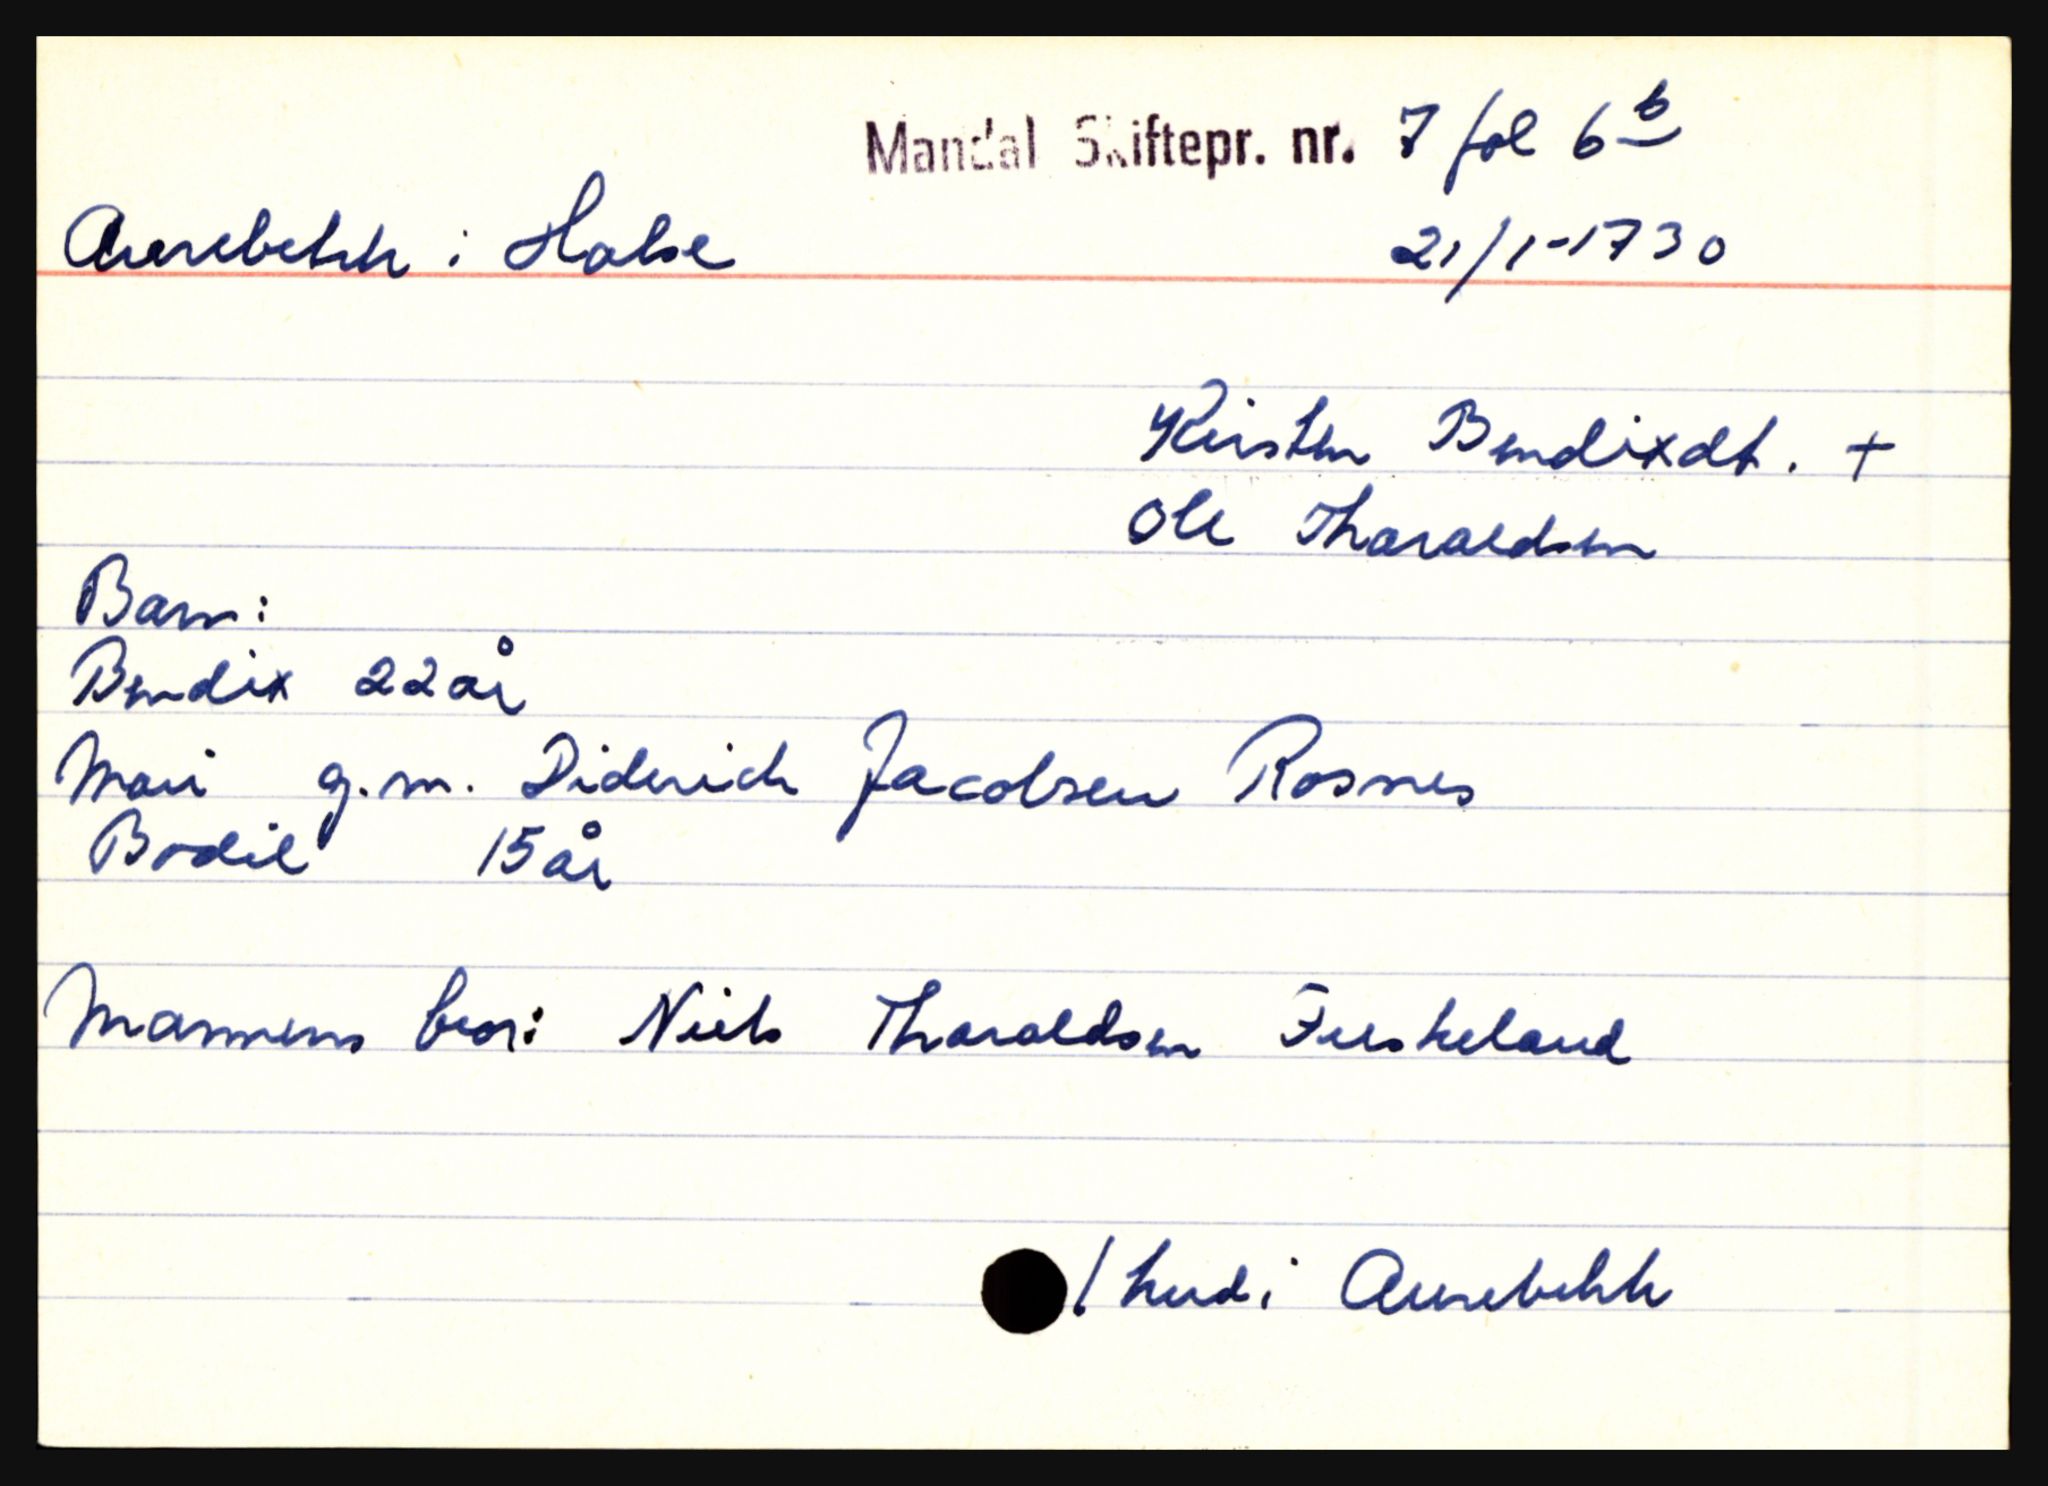 Mandal Skiftepr. nr. 7 fol 6 b
Aurebekk i Halse 21/1-1730
Kirsten Bendixdt. +
Ole Tharaldsen
Barn:
Bendix 22 år
Mari g.m. Diderich Jacobsen Rosnes
Bodil 15 år
Mannens bror: Niels Tharaldsen Fuskeland
1 hud i Aurebekk